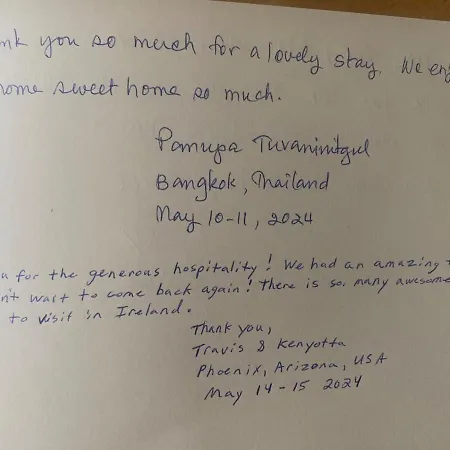 nk you so much for a lovely stay. We en
home sweet home so much.
Pamupa Tuvaninitgul
Bangkok, Thailand
May 10-11, 2024
u for the generous hospitality! We had an amazing t
n't wait to come back again! There is so many awesome
to visit in Ireland.
Thank you,
Travis & Kenyotta
Phoenix, Arizona, USA
May 14-15 2024